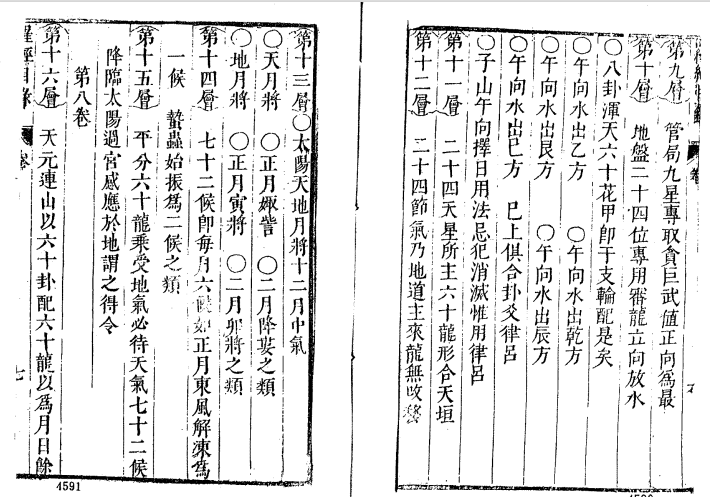 第九層 管局九星專取貪巨武值正向為最
第十層 地盤二十四位專用審龍立向放水
○八卦渾天六十花甲卽干支輪配是矣
○午向水出乙方 ○午向水出乾方
○午向水出艮方 ○午向水出辰方
○午向水出巳方 巳上俱合卦爻律呂
○子山午向擇日用法忌犯消滅惟用律呂
第十一層 二十四天星所主六十龍形合天垣
第十二層 二十四節氣乃地道主來龍無改
第十三層○太陽天地月將十二月中氣
○天月將 ○正月娵訾 ○二月降婁之類
○地月將 ○正月寅將 ○二月卯將之類
第十四層 七十二候卽每月六候如正月東風解凍為
一候 蟄蟲始振為二候之類
第十五層 平分六十龍乘受地氣必待天氣七十二候
降臨太陽過宮感應於地謂之得令
第八卷
第十六層 天元連山以六十卦配六十龍以為月日餘
羅經目錄 卷 七
4591